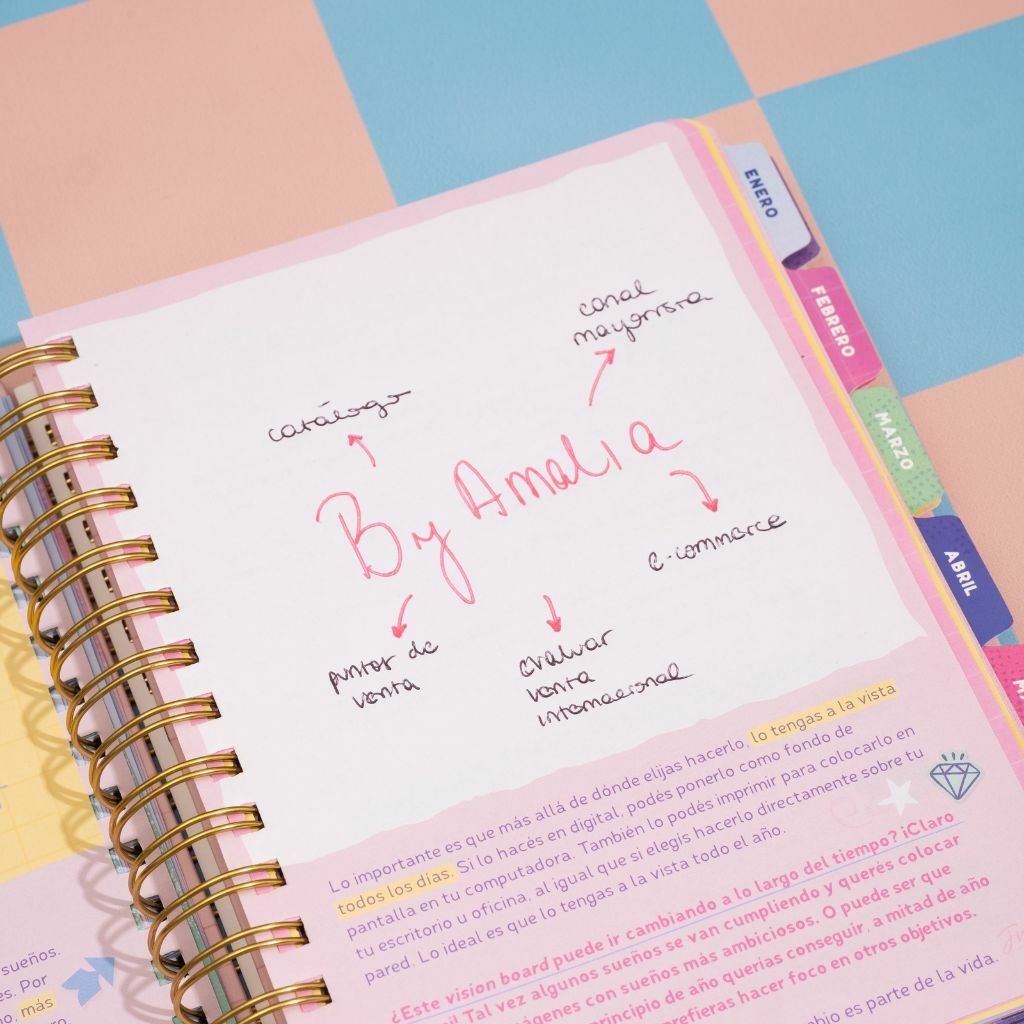 canal
mayorista
catálogo
By Amalia
e-commerce
puntos de
venta
evaluar
venta
internacional
Lo importante es que más allá de dónde elijas hacerlo, lo tengas a la vista
todos los días. Si lo hacés en digital, podés ponerlo como fondo de
pantalla en tu computadora. También lo podés imprimir para colocarlo en
tu escritorio u oficina, al igual que si elegís hacerlo directamente sobre tu
pared. Lo ideal es que lo tengas a la vista todo el año.
¿Este vision board puede ir cambiando a lo largo del tiempo? ¡Claro
Tal vez algunos sueños se van cumpliendo y querés colocar
imágenes con sueños más ambiciosos. O puede ser que
principio de año querías conseguir, a mitad de año
prefieras hacer foco en otros objetivos.
es parte de la vida.
ENERO
FEBRERO
MARZO
ABRIL
sueños.
Por
más